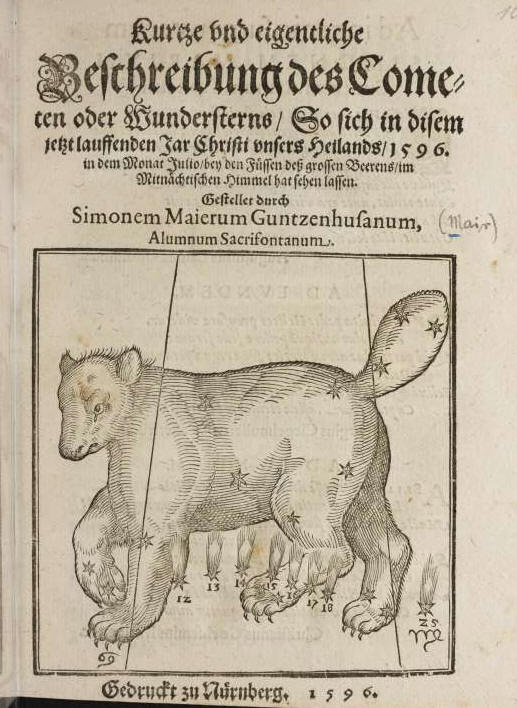 Kurtze vnd eigentliche
Beschreibung des Come-
ten oder Wundersterns/ So sich in disem
jetzt lauffenden Jar Christi vnsers Heilands/ 1596.
in dem Monat Julio/ bey den Füssen deß grossen Beerens/ im
Mitnächtischen Himmel hat sehen lassen.
Gestellet durch
Simonem Maierum Guntzenhusanum, (Mair)
Alumnum Sacrifontanum.
12 13 14 15 16 17 18
25
♍
♋
Gedruckt zu Nürnberg. 1596.